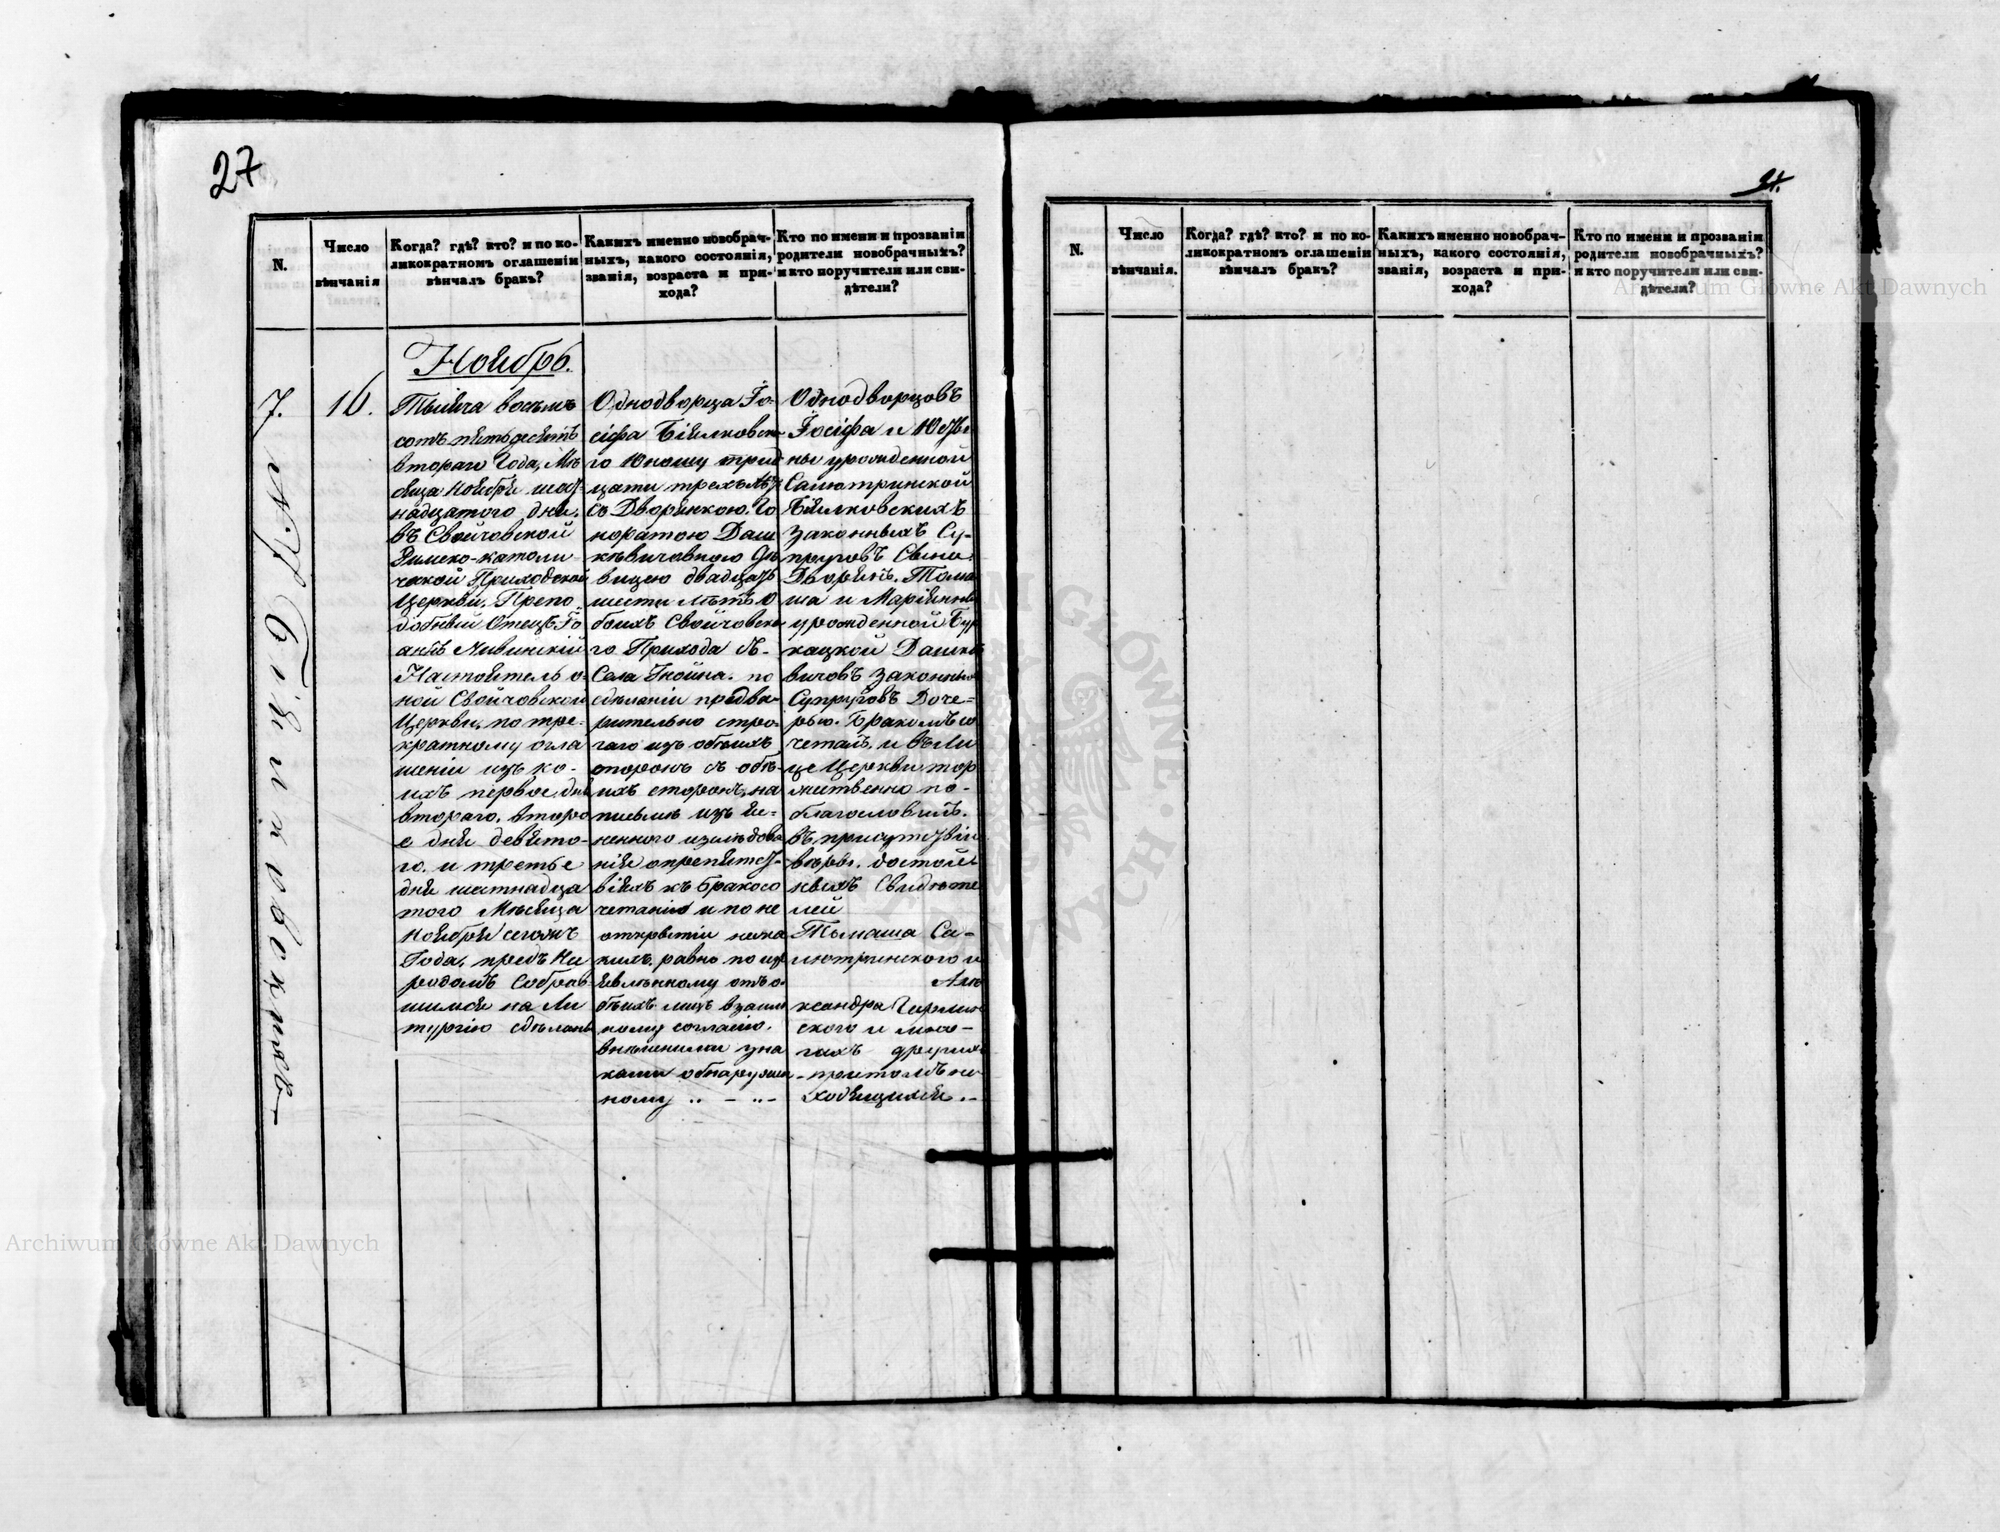 27
N.
Число
вѣнчанія
Когда? гдѣ? кто? и по ко-
ликократномъ оглашеніи
вѣнчалъ бракъ?
Какихъ именно новобрач-
ныхъ, какого состоянія,
званія, возраста и при-
хода?
Кто по имени и прозванію
родители новобрачныхъ?
и кто поручители или сви-
дѣтели?
Ноябрь.
7.
16.
Тысяча восемь
сотъ пятьдесятъ
втораго Года, Мѣ
сяца Ноября шест
надцатого дня.
въ Свойчовской
Римско-католи
ческой Приходской
Церкви. Препо
добный Отецъ Іо
аннъ
Настоятель о-
ной Свойчовской
Церкви, по трех
кратному огла
шеніи изъ ко-
ихъ первое дня
втораго, второ
е дня девято-
го. и третье
дня шестнадца
того Мѣсяца
Ноября сегожъ
Года, предъ На
родомъ Собрав
шимся на Ли
тургію сдѣланы
Однодворца Іо-
сифа Бялковска
го Юношу трид
цати трехъ лѣт
съ Дворянкою Го
норатою Даш
кѣвичовною Дѣ
вицею двадцать
шести лѣтъ о
боихъ Свойчовска
го Прихода съ-
Села Гнойна. по
сдѣланіи предва
рительно стро-
гаго изъ обоихъ
сторонъ съ обѣ-
ихъ сторонъ, на
письмѣ изъ яс-
неннаго изслѣдова
нія о препятст-
віяхъ къ бракосо
четанію и по не
открытіи ника
кихъ. равно по изъ
явленному отъ о
быхъ лицъ взаим
ному согласію.
внѣшними зна
ками обнаружен
ному .. — .. —
Однодворцовъ
Іосифа и Юзефы
ны урожденной
Салютринской
Бялковскихъ
Законныхъ Су-
пруговъ Сына.
Дворянъ. Тома
ша и Маріянны
урожденной Бур
кацкой Дашкѣ
вичовъ Законны
Супруговъ Доче-
рью. Бракомъ со
четалъ. и въ Ли
це Церкви тор
жественно по-
благословилъ.
въ присутствіи
вѣры. достой
ныхъ Свидѣте
лей
Томаша Са-
лютринского и
Але
ксандра
ского и мно-
гихъ другихъ
при томъ на
ходящихся. —
N.
Число
вѣнчанія.
Когда? гдѣ? кто? и по ко-
ликократномъ оглашеніи
вѣнчалъ бракъ?
Какихъ именно новобрач-
ныхъ, какого состоянія,
званія, возраста и при-
хода?
Кто по имени и прозванію
родители новобрачныхъ?
и кто поручители или сви-
дѣтели?
Archiwum Główne Akt Dawnych
Archiwum Główne Akt Dawnych